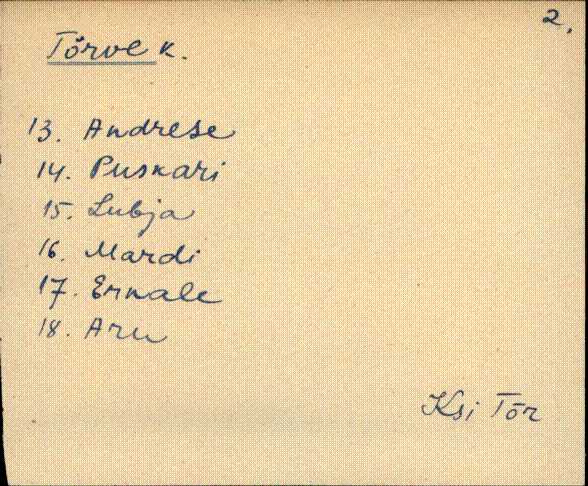 2.
Tõrve k.
13. Andrese
14. Puskari
15. Lubja
16. Mardi
17. Ernale
18. Aru
Ksi Tõr